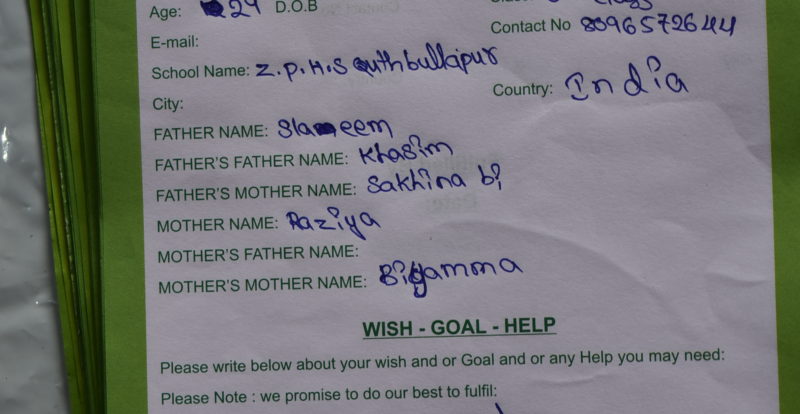 Age: 24 D.O.B
Contact No 8096572644
E-mail:
School Name: Z.P.H.S Quthbullapur
Country: India
City:
FATHER NAME: Slameem
FATHER'S FATHER NAME: Khasim
FATHER'S MOTHER NAME: Sakhina bi
MOTHER NAME: Raziya
MOTHER'S FATHER NAME:
MOTHER'S MOTHER NAME: Bigamma
WISH - GOAL - HELP
Please write below about your wish and or Goal and or any Help you may need:
Please Note : we promise to do our best to fulfil: